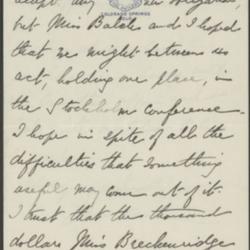 COLORADO SPRINGS
but Miss Balch and I hoped
that we might between us
act, holding one place, in
the Stockholm conference -
I hope in spite of all the
difficulties that something
useful may come out of it.
I trust that the thousand
dollars Miss Breckenridge